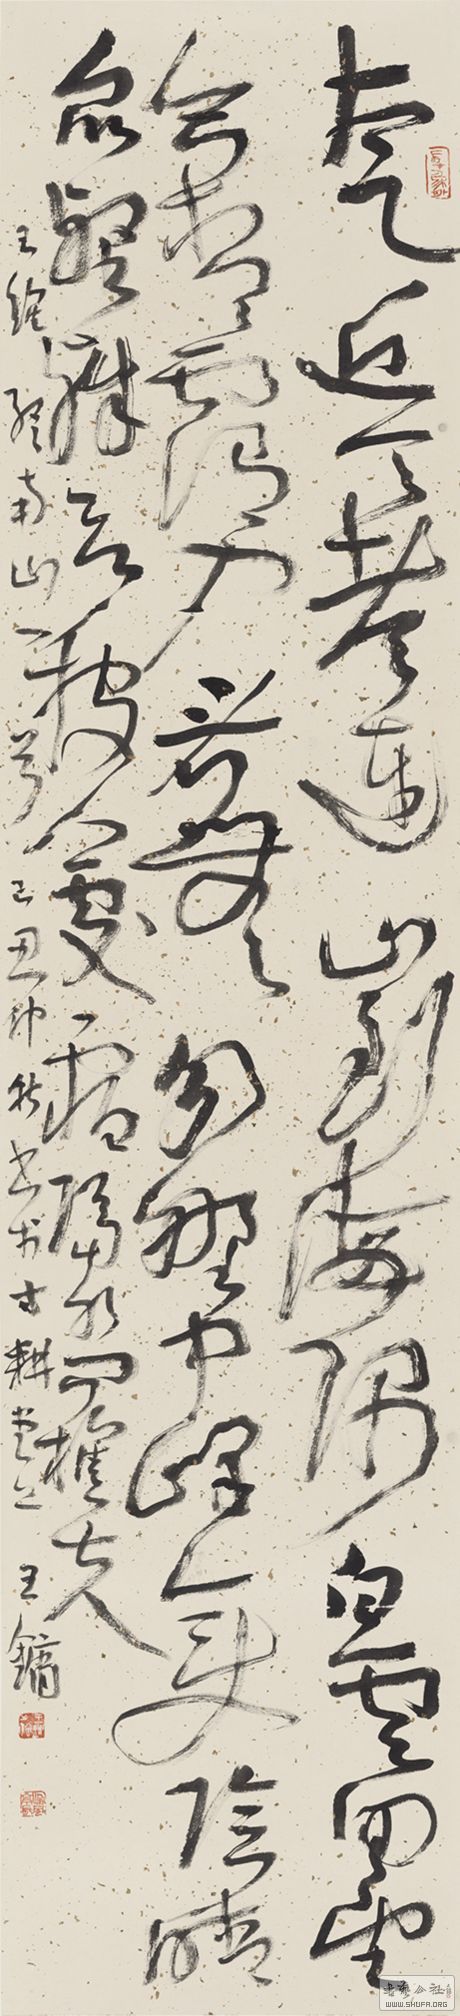 太乙近天都連山到海隅白雲回望
合青靄入看無分野中峰變陰晴
眾壑殊欲投人處宿隔水問樵夫
王維終南山一首己丑仲秋書於古耕堂上王鏞
書藝公社
WWW.SHUFA.ORG